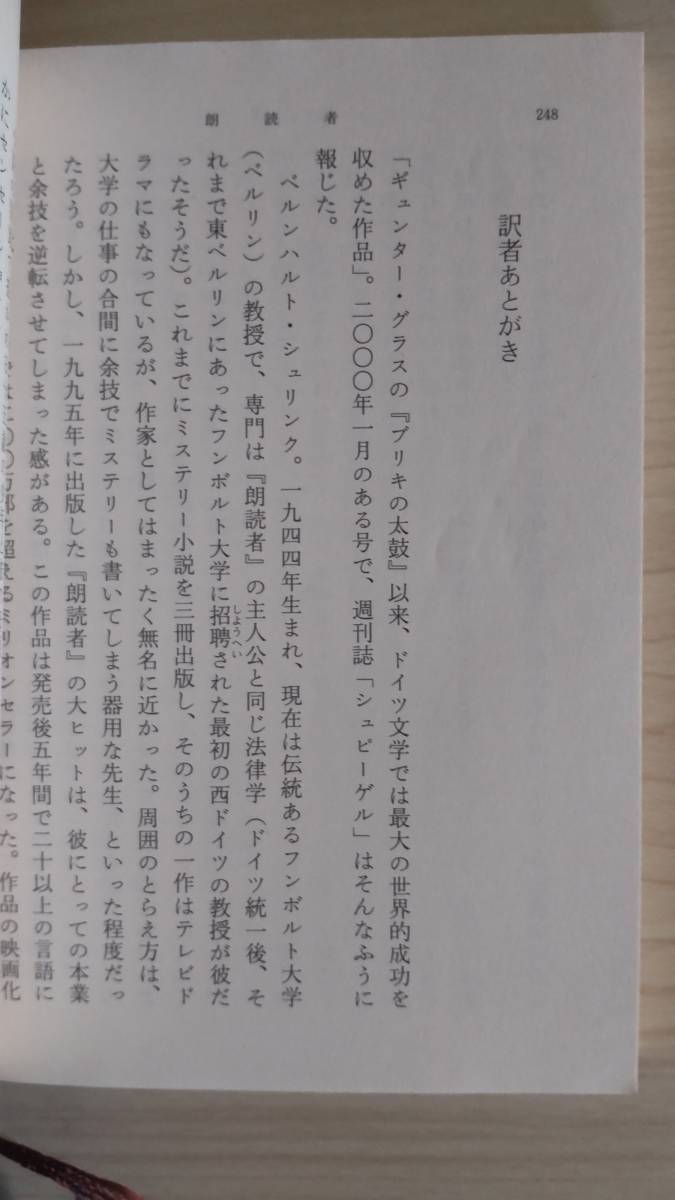 朗読者
248
訳者あとがき
「ギュンター・グラスの『ブリキの太鼓』以来、ドイツ文学では最大の世界的成功を
収めた作品」。二〇〇〇年一月のある号で、週刊誌「シュピーゲル」はそんなふうに
報じた。
ベルンハルト・シュリンク。一九四四年生まれ、現在は伝統あるフンボルト大学
（ベルリン）の教授で、専門は『朗読者』の主人公と同じ法律学（ドイツ統一後、そ
れまで東ベルリンにあったフンボルト大学に招聘された最初の西ドイツの教授が彼だ
しょうへい
ったそうだ）。これまでにミステリー小説を三冊出版し、そのうちの一作はテレビド
ラマにもなっているが、作家としてはまったく無名に近かった。周囲のとらえ方は、
大学の仕事の合間に余技でミステリーも書いてしまう器用な先生、といった程度だっ
たろう。しかし、一九九五年に出版した『朗読者』の大ヒットは、彼にとっての本業
と余技を逆転させてしまった感がある。この作品は発売後五年間で二十以上の言語に
万部を超えるミリオンセラーになった。作品の映画化